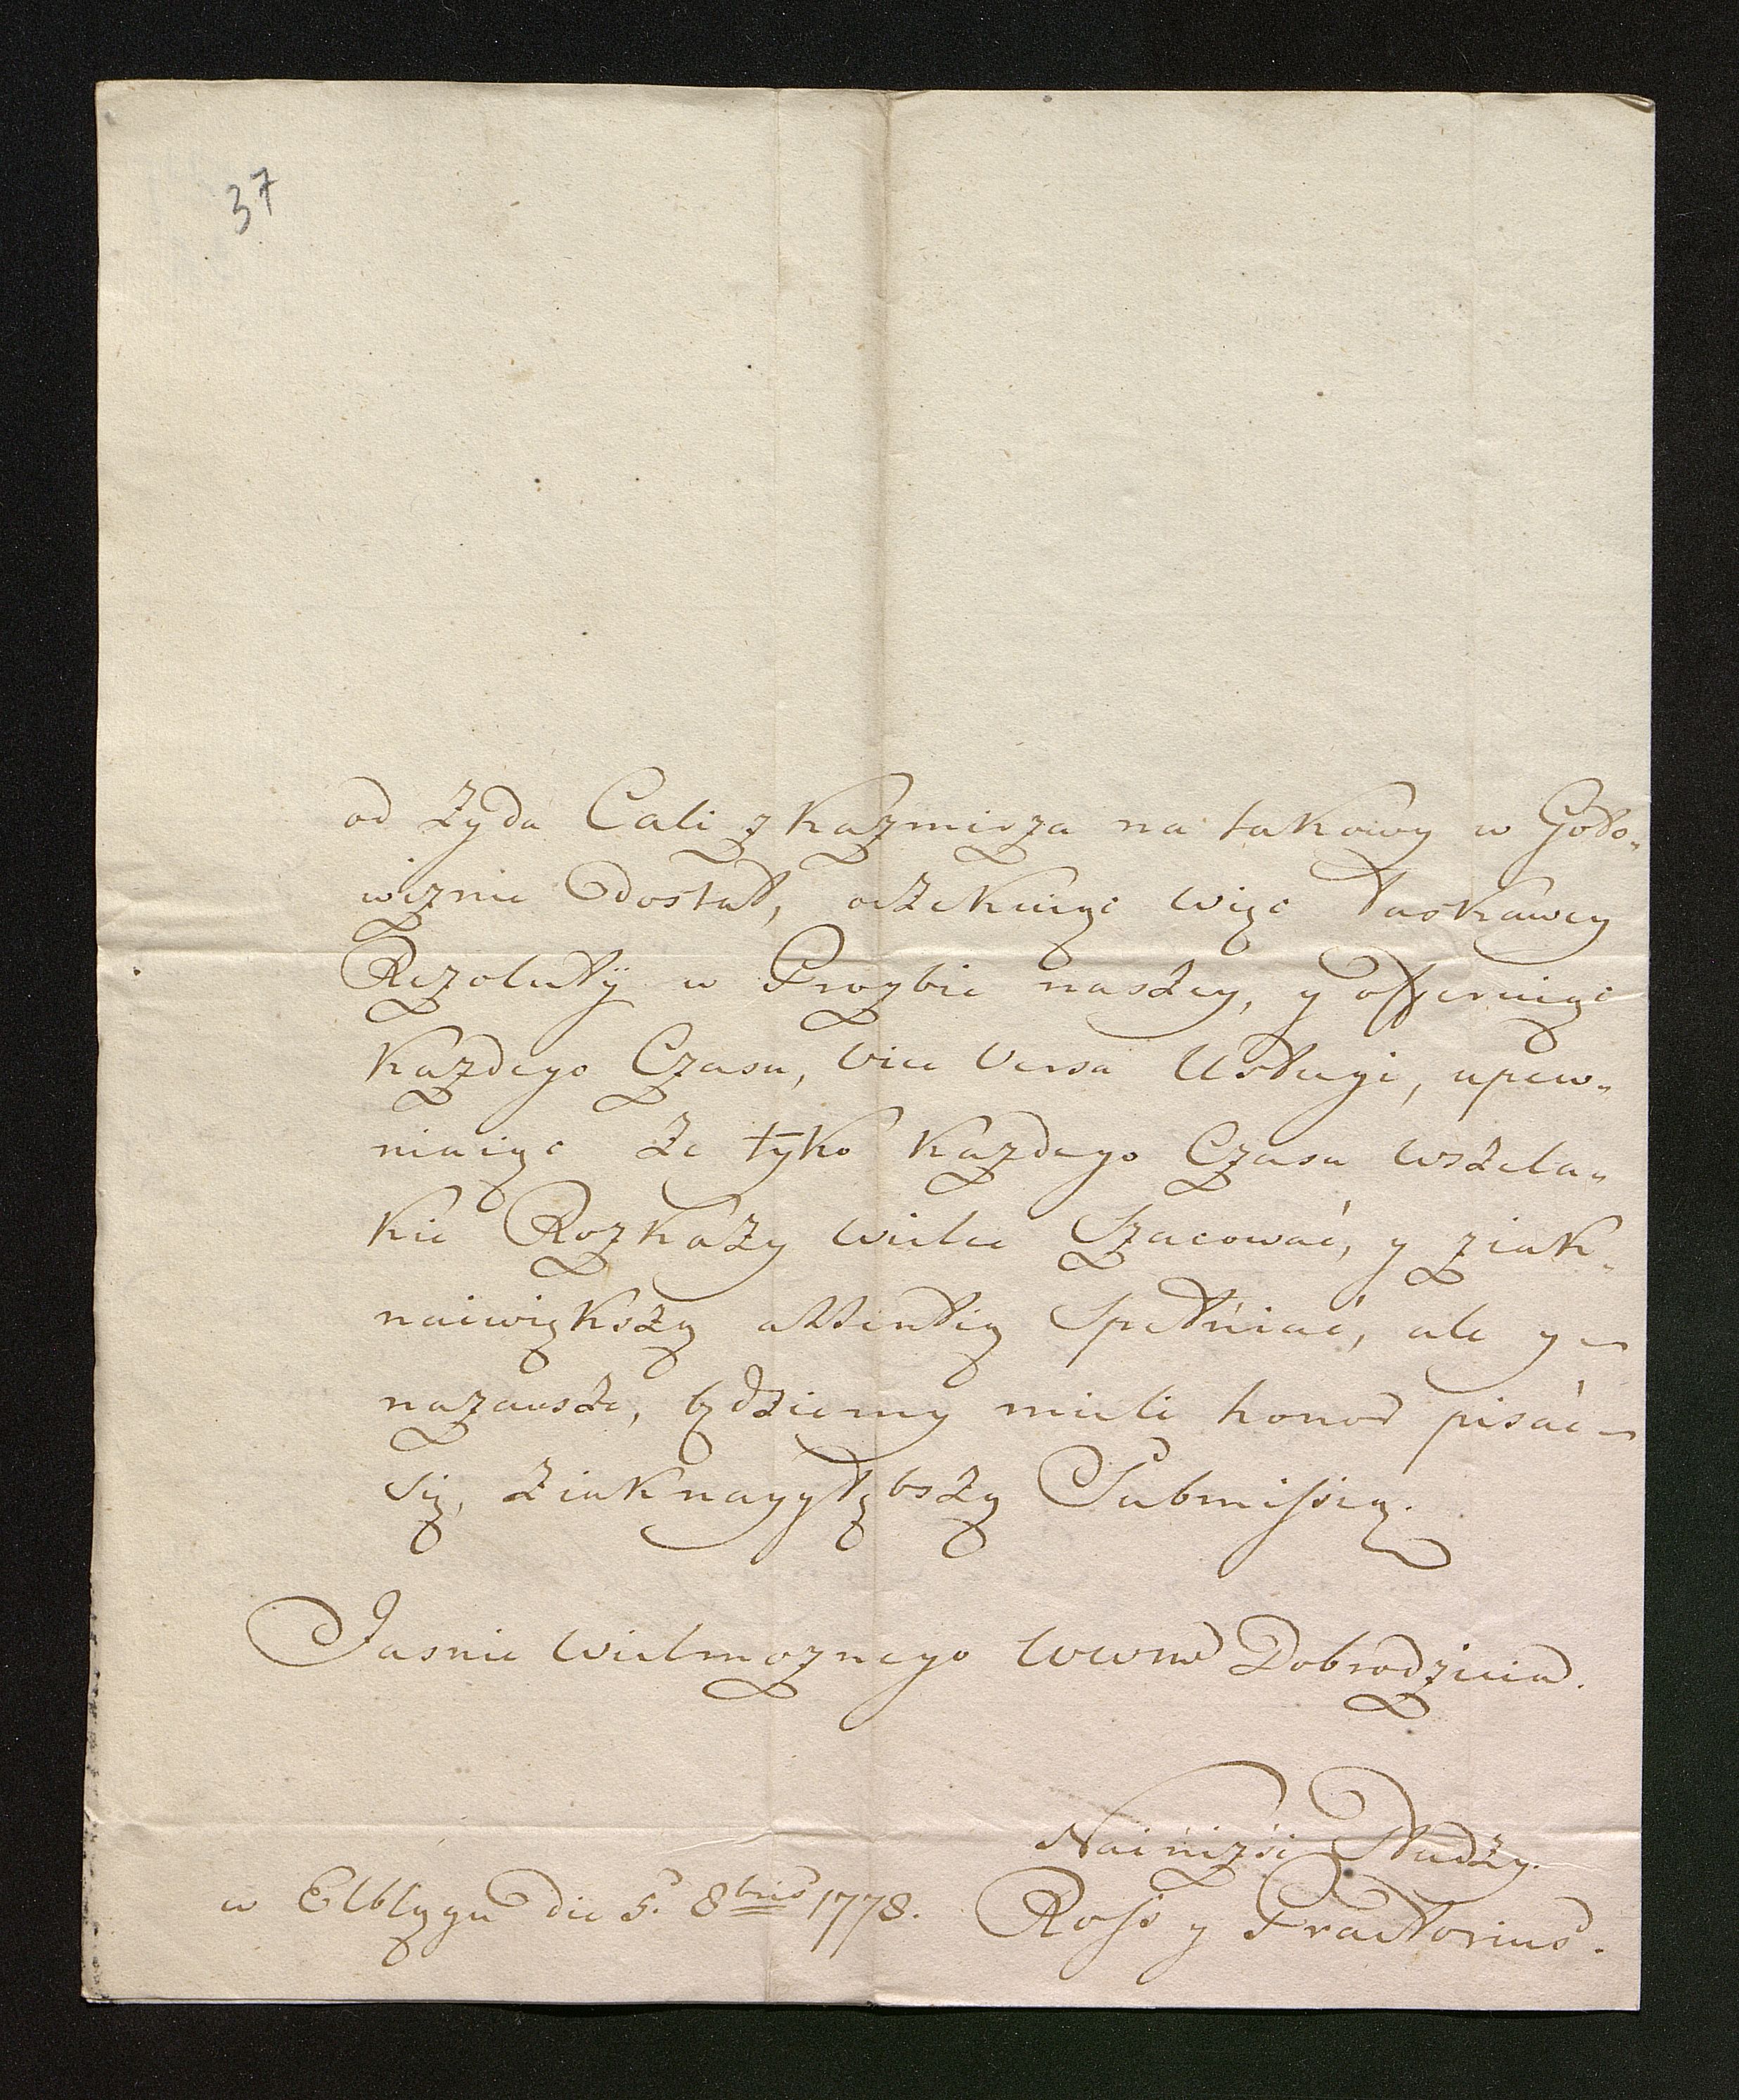 37
od Żyda Cali z Kazmirza na takowy w Goto„
wiznie dostał, oczekuiąc więc łaskawey
Rezolutÿ w Prozbie naszey, y offeruiąc
Kazdego Czasu, vice versa Usługi, upew„
niaiąc że tyko Kazdego Czasu wszela„
kie Rozkazy wielce Szacować, y ziak„
naiwiększą attentią Spełniać, ale y
nazawsze, będziemy mieli honor pisać
Się, ziaknaygłębszą Submissią.
Jasnie Wielmoznego WWM Dobrodzieia.
Nainizsi Słudzy.
w Elblągu die 5. 8bris 1778. Ross y Praetorius.